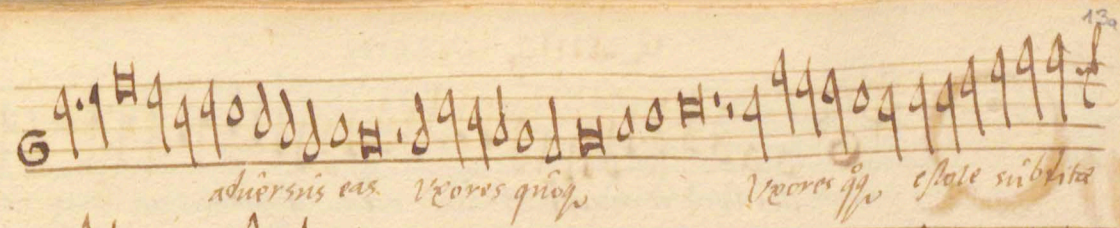 13
aduersus eas Vxores quoq Vxores qq estote subditæ